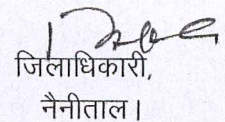 जिलाधिकारी,
नैनीताल।